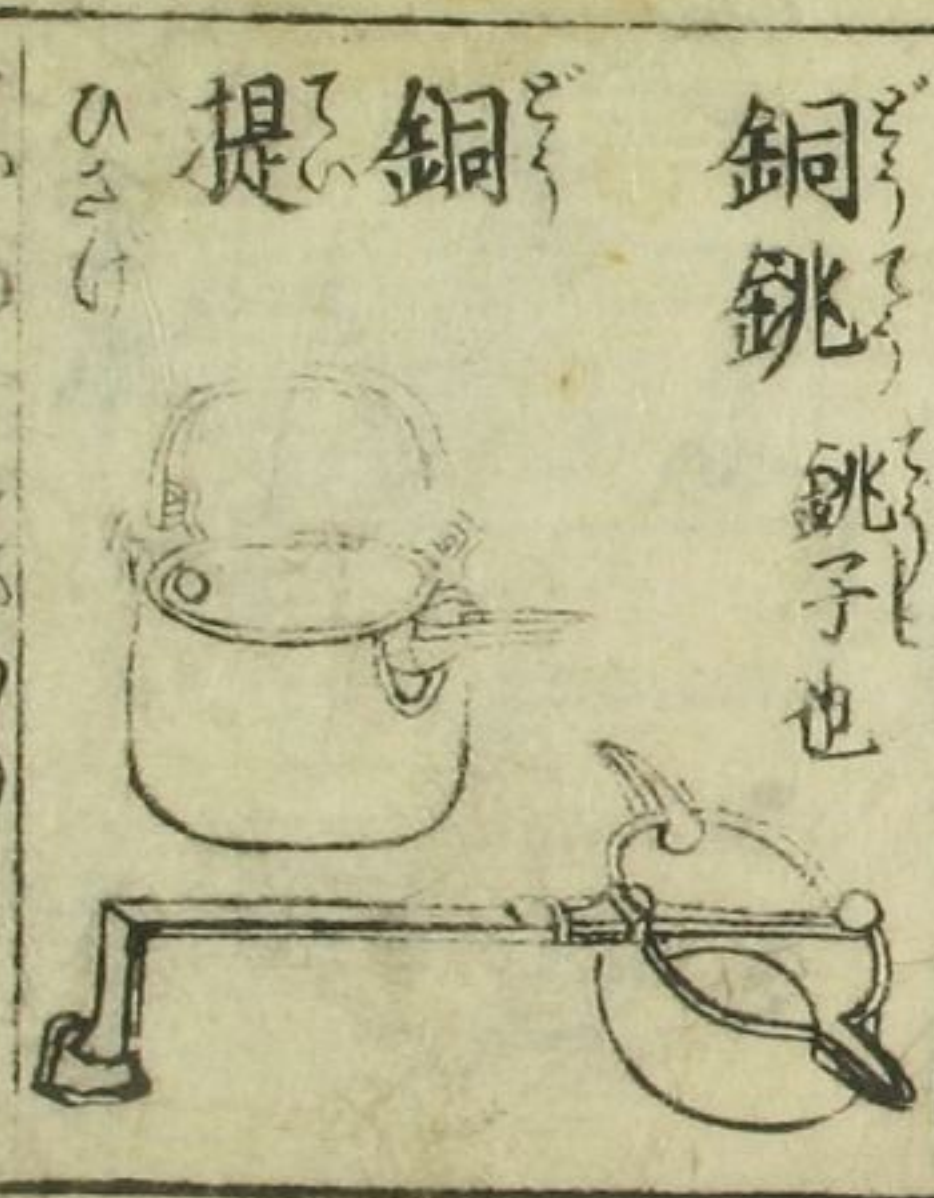 銅銚 どうてう
銚子也 てうし
銅提 どうてい
ひさげ